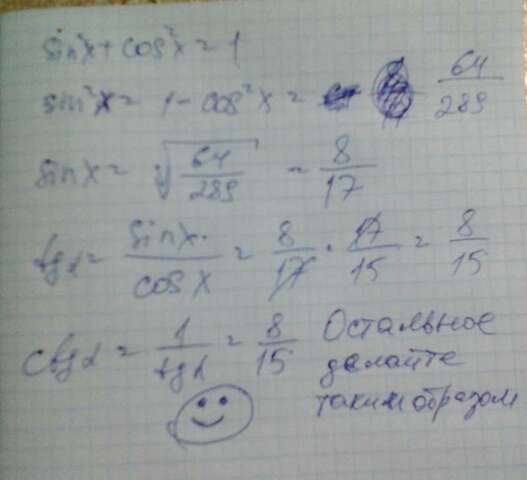 sin²x + cos²x = 1
sin²x = 1 - cos²x = 64/289
sinx = √64/289 = 8/17
tgα = sinx/cosx = 8/17 · 17/15 = 8/15
ctgα = 1/tgα = 8/15
Остальное
делайте
таким образом